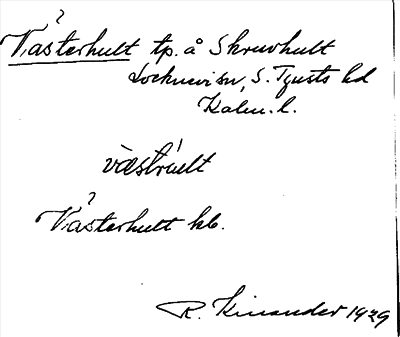 ?
Västerhult tp. å Skruvhult
Locknevi sn, S. Tjusts hd
Kalm. l.
västr̀ult
?
Västerhult kb.
R. Kinander 1929